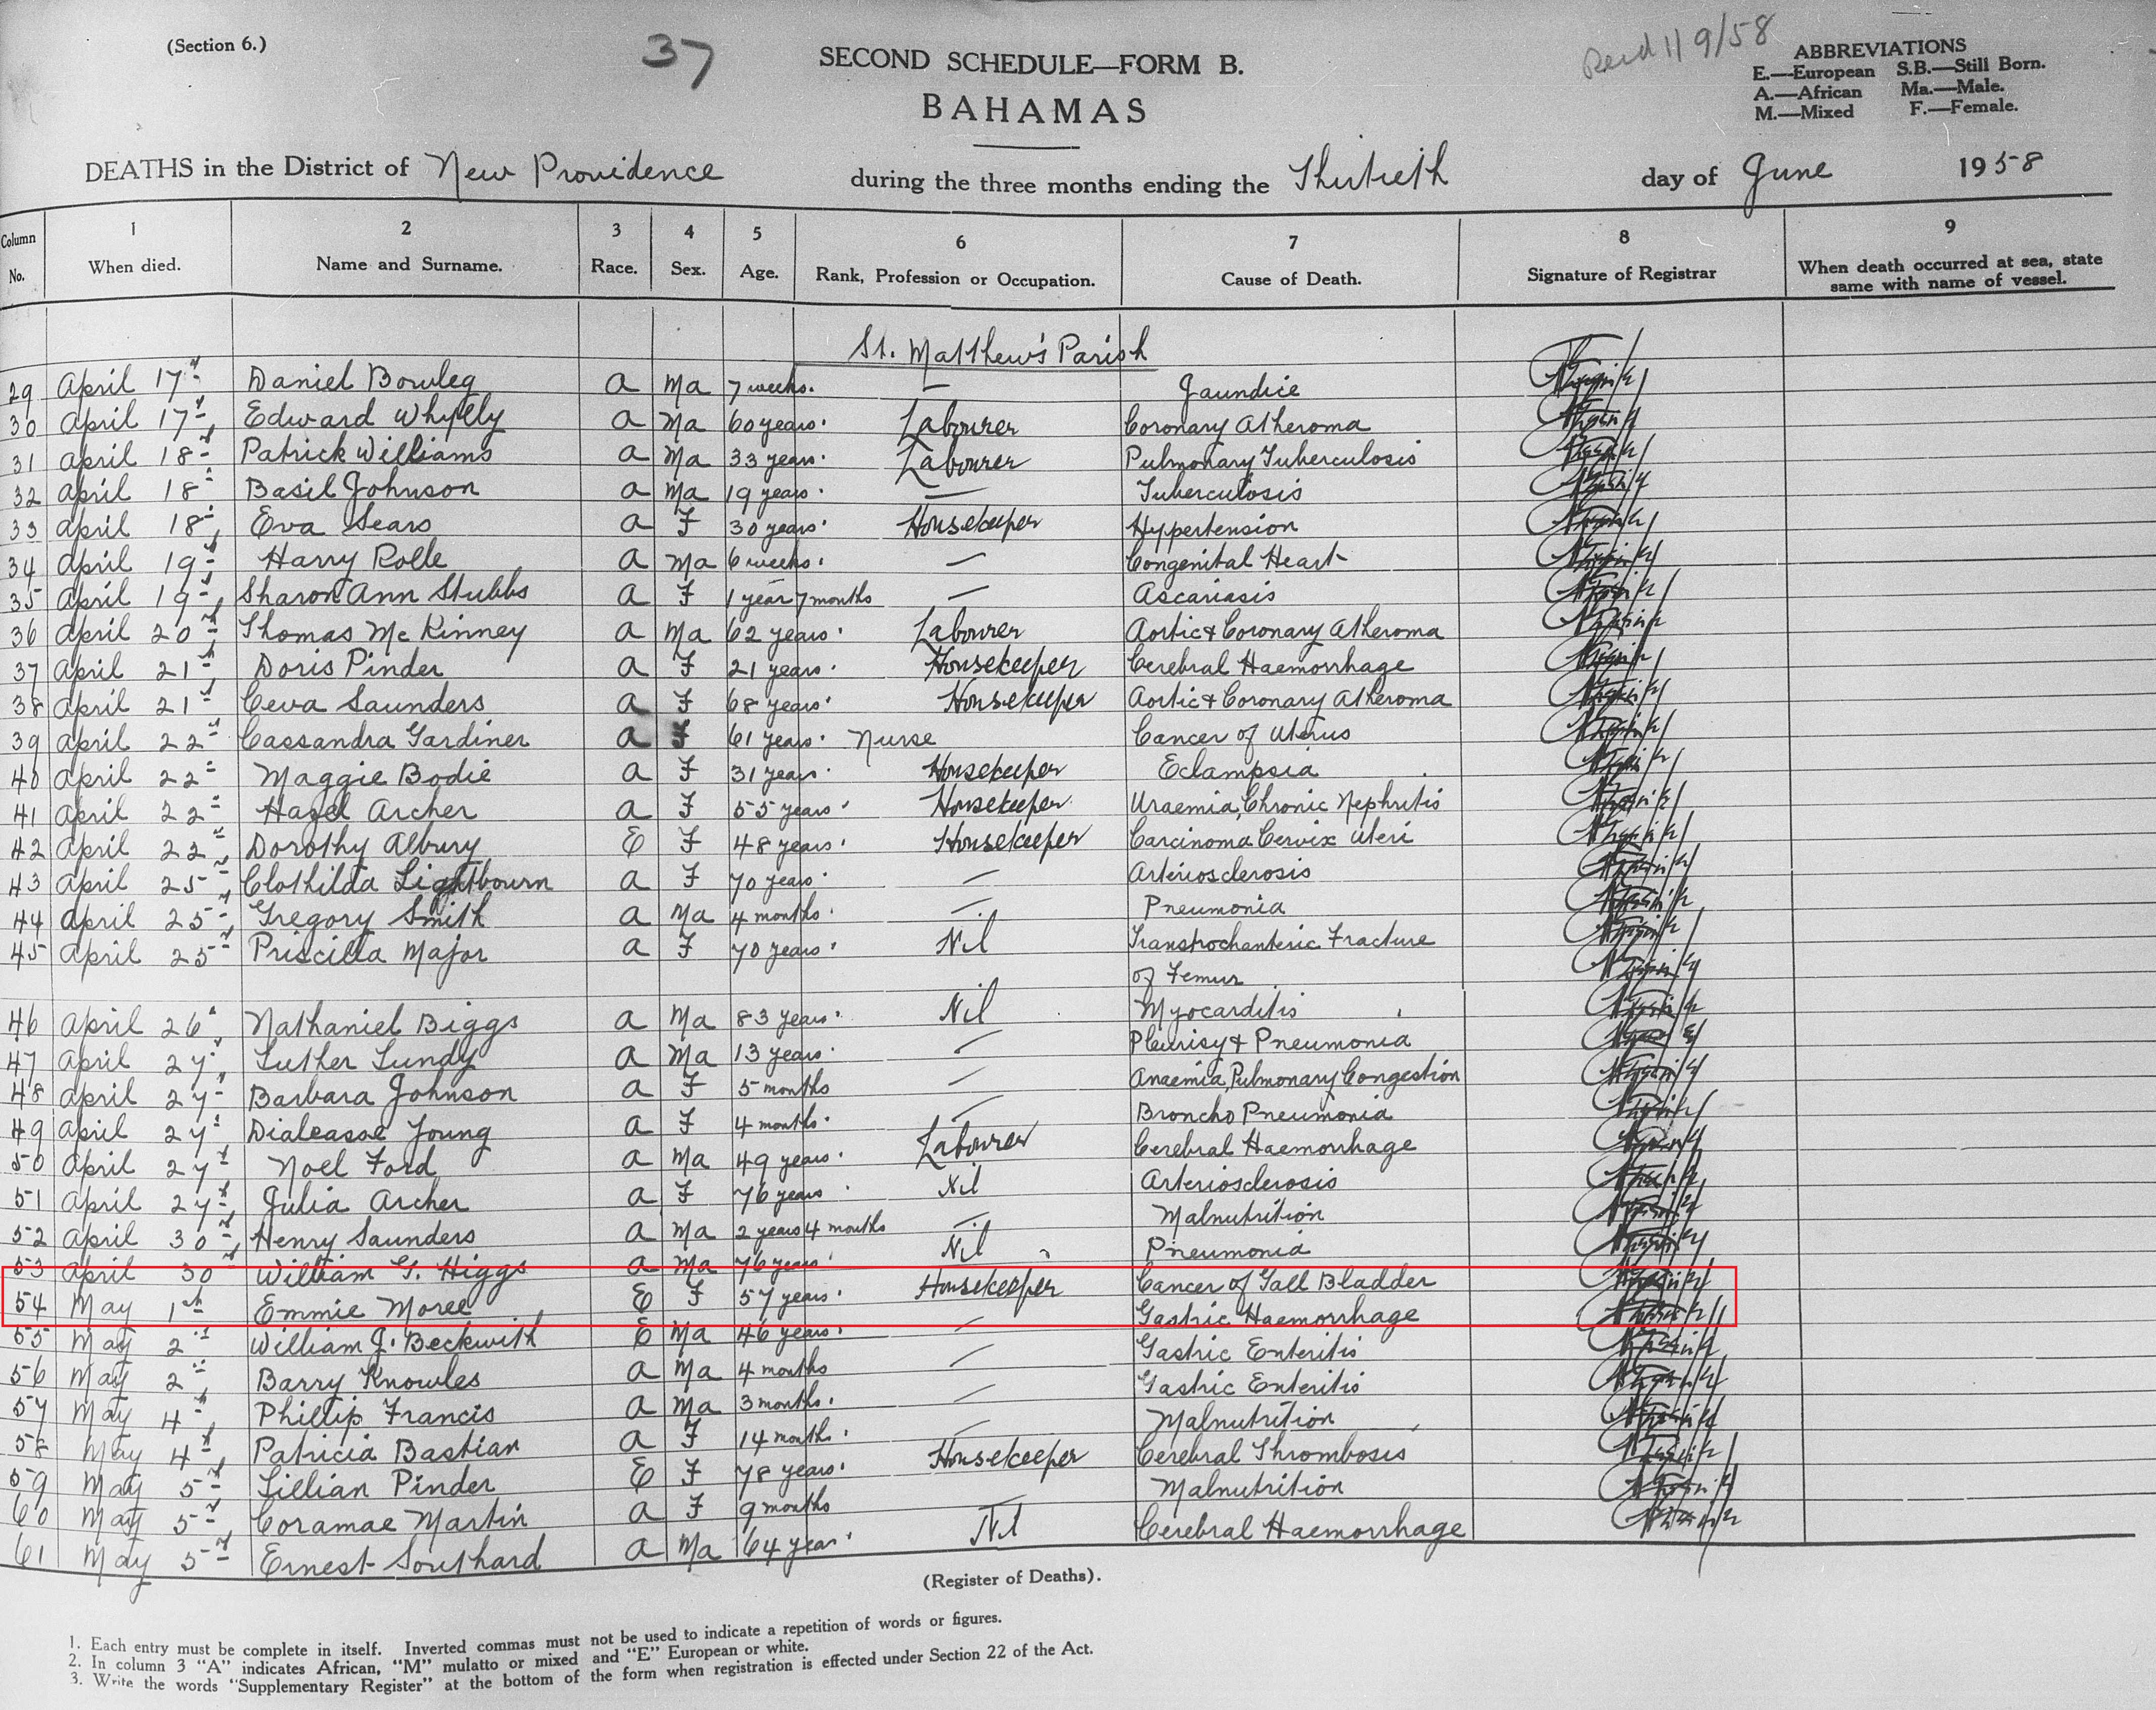 (Section 6.)
37
SECOND SCHEDULE—FORM B.
BAHAMAS
11/9/58
ABBREVIATIONS
E.—European S.B.—Still Born.
A.—African Ma.—Male.
M.—Mixed F.—Female.
DEATHS in the District of New Providence during the three months ending the Thirtieth day of June 1958
Column No. 1 When died. 2 Name and Surname. 3 Race. 4 Sex. 5 Age. 6 Rank, Profession or Occupation. 7 Cause of Death. 8 Signature of Registrar 9 When death occurred at sea, state same with name of vessel.
St. Matthew's Parish
29 April 17th Daniel Bowleg A Ma 7 weeks. — Jaundice
30 April 17th Edward Whylly A Ma 60 years. Labourer Coronary Atheroma
31 April 18th Patrick Williams A Ma 33 years. Labourer Pulmonary Tuberculosis
32 April 18th Basil Johnson A Ma 19 years. — Tuberculosis
33 April 18th Eva Sears A F 30 years. Housekeeper Hypertension
34 April 19th Harry Rolle A Ma 6 weeks. — Congenital Heart
35 April 19th Sharon Ann Stubbs A F 1 year 7 months — Ascariasis
36 April 20th Thomas McKinney A Ma 62 years. Labourer Aortic & Coronary Atheroma
37 April 21st Doris Pinder A F 21 years. Housekeeper Cerebral Haemorrhage
38 April 21st Ceva Saunders A F 68 years. Housekeeper Aortic & Coronary Atheroma
39 April 22nd Cassandra Gardiner A F 61 years. Nurse Cancer of Uterus
40 April 22nd Maggie Bodie A F 31 years. Housekeeper Eclampsia
41 April 22nd Hazel Archer A F 55 years. Housekeeper Uraemia, Chronic Nephritis
42 April 22nd Dorothy Albury E F 48 years. Housekeeper Carcinoma Cervix Uteri
43 April 25th Clothilda Lightbourn A F 70 years. — Arteriosclerosis
44 April 25th Gregory Smith A Ma 4 months. — Pneumonia
45 April 25th Priscilla Major A F 70 years. Nil Transtrochanteric Fracture
of Femur
46 April 26th Nathaniel Biggs A Ma 83 years. Nil Myocarditis
47 April 27th Luther Lundy A Ma 13 years. — Pleurisy & Pneumonia
48 April 27th Barbara Johnson A F 5 months — Anaemia, Pulmonary Congestion
49 April 27th Young A F 4 months. — Broncho Pneumonia
50 April 27th Noel Ford A Ma 49 years. Labourer Cerebral Haemorrhage
51 April 27th Julia Archer A F 76 years Nil Arteriosclerosis
52 April 30th Henry Saunders A Ma 2 years 4 months — Malnutrition
53 April 30th William G. Higgs A Ma 76 years. Nil Pneumonia
54 May 1st Emmie Moree E F 57 years. Housekeeper Cancer of Gall Bladder
55 May 2nd William J. Beckwith E Ma 46 years. — Gastric Haemorrhage
56 May 2nd Barry Knowles A Ma 4 months — Gastric Enteritis
57 May 4th Phillip Francis A Ma 3 months. — Gastric Enteritis
58 May 4th Patricia Bastian A F 14 months. — Malnutrition
59 May 5th Lillian Pinder E F 78 years. Housekeeper Cerebral Thrombosis
60 May 5th Coramae Martin A F 9 months — Malnutrition
61 May 5th Ernest Southard A Ma 64 year. Nil Cerebral Haemorrhage
(Register of Deaths).
1. Each entry must be complete in itself. Inverted commas must not be used to indicate a repetition of words or figures.
2. In column 3 "A" indicates African, "M" mulatto or mixed and "E" European or white.
3. Write the words "Supplementary Register" at the bottom of the form when registration is effected under Section 22 of the Act.